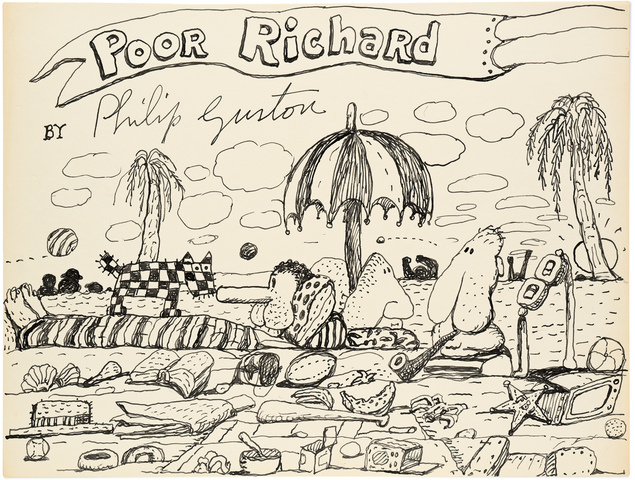 POOR RicHARD
BY Philip Guston